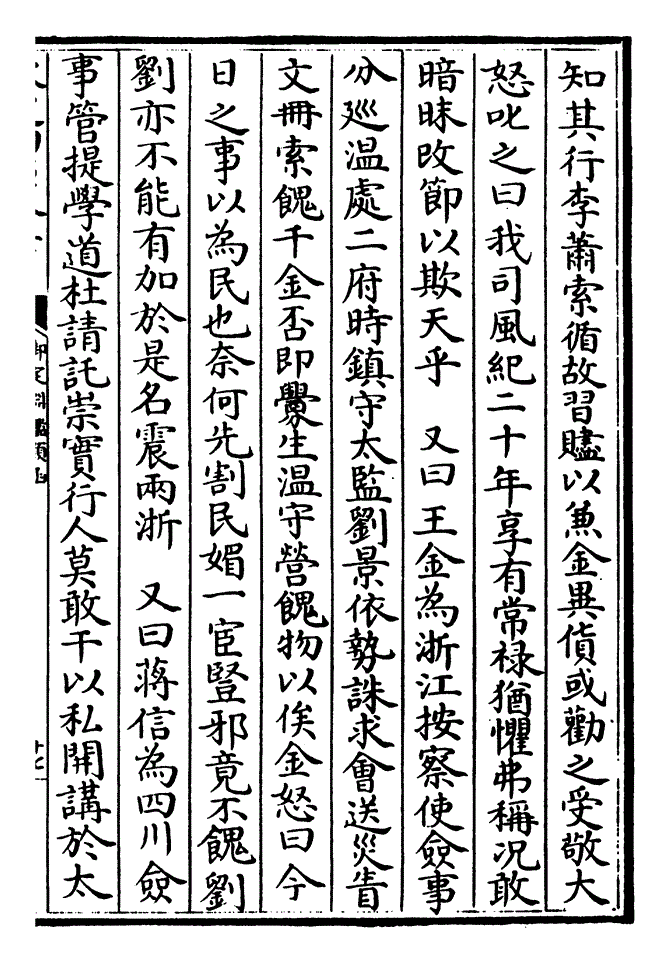 知其行李蕭索循故習贐以兼金異貨或勸之受敬大
怒叱之曰我司風紀二十年享有常祿猶懼弗稱况敢
暗昧改節以欺天乎　又曰王金為浙江按察使僉事
分廵温處二府時鎮守太監劉景依勢誅求會送災眚
文冊索餽千金否即釁生温守營餽物以俟金怒曰今
日之事以為民也奈何先割民媚一宦豎邪竟不餽劉
劉亦不能有加於是名震兩浙　又曰蔣信為四川僉
事管提學道杜請託崇實行人莫敢干以私開講於太
御定淵鑑類函